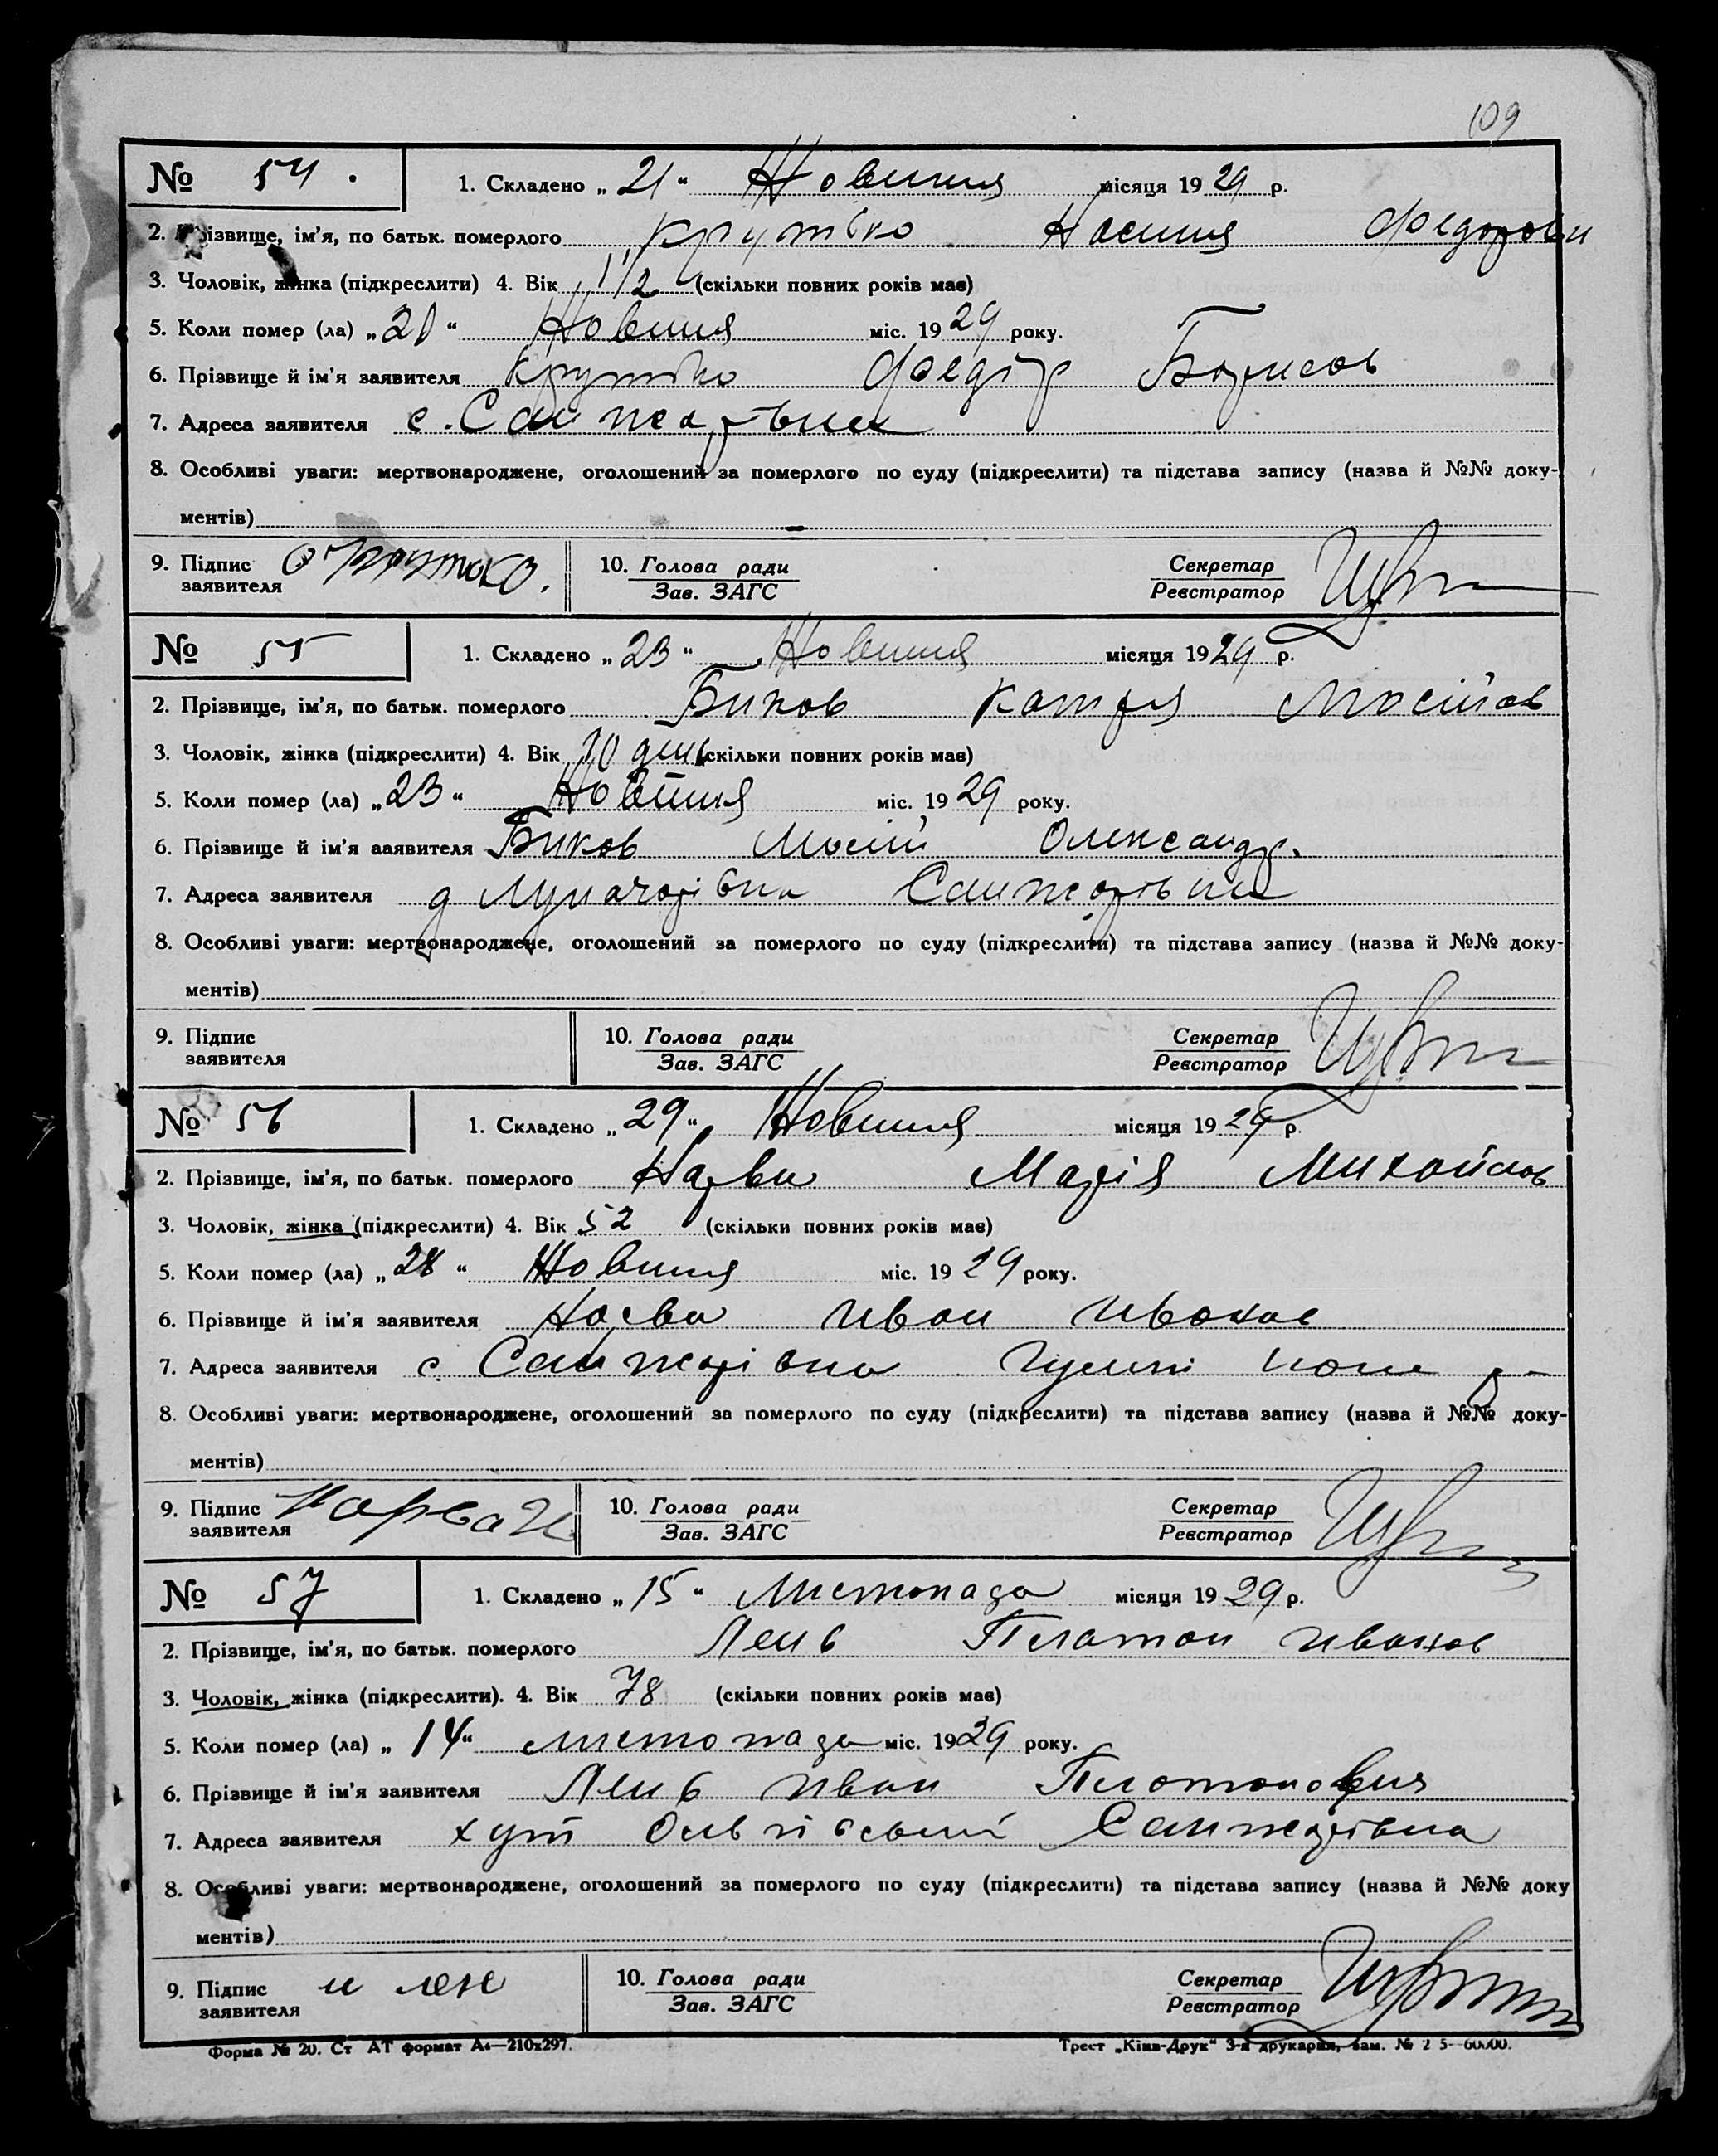 109
№ 54. 1. Складено „21“ Жовтня місяця 1929 р.
2. Прізвище, ім'я, по батьк. померлого Крутько Настя Федорови
3. Чоловік, жінка (підкреслити) 4. Вік 1/2 (скільки повних років має)
5. Коли помер (ла) „20“ Жовтня міс. 1929 року.
6. Прізвище й ім'я заявителя Крутько Федір Борисов
7. Адреса заявителя с. Санжарівка
8. Особливі уваги: мертвонароджене, оголошений за померлого по суду (підкреслити) та підстава запису (назва й №№ доку-
ментів)
9. Підпис заявителя Крутько. 10. Голова ради Зав. ЗАГС Секретар Реєстратор
№ 55 1. Складено „23“ Жовтня місяця 1929 р.
2. Прізвище, ім'я, по батьк. померлого Биков Катря Мосійов
3. Чоловік, жінка (підкреслити) 4. Вік 10 день (скільки повних років має)
5. Коли помер (ла) „23“ Жовтня міс. 1929 року.
6. Прізвище й ім'я заявителя Биков Мосій Олександр.
7. Адреса заявителя Санжарівка
8. Особливі уваги: мертвонароджене, оголошений за померлого по суду (підкреслити) та підстава запису (назва й №№ доку-
ментів)
9. Підпис заявителя 10. Голова ради Зав. ЗАГС Секретар Реєстратор
№ 56 1. Складено „29“ Жовтня місяця 1929 р.
2. Прізвище, ім'я, по батьк. померлого Марія Михайлов
3. Чоловік, жінка (підкреслити) 4. Вік 52 (скільки повних років має)
5. Коли помер (ла) „28“ Жовтня міс. 1929 року.
6. Прізвище й ім'я заявителя Иван Иванов
7. Адреса заявителя с. Санжарівка
8. Особливі уваги: мертвонароджене, оголошений за померлого по суду (підкреслити) та підстава запису (назва й №№ доку-
ментів)
9. Підпис заявителя 10. Голова ради Зав. ЗАГС Секретар Реєстратор
№ 57 1. Складено „15“ Листопада місяця 1929 р.
2. Прізвище, ім'я, по батьк. померлого Лень Платон Иванов
3. Чоловік, жінка (підкреслити). 4. Вік 78 (скільки повних років має)
5. Коли помер (ла) „14“ Листопада міс. 1929 року.
6. Прізвище й ім'я заявителя Лень Иван Платонович
7. Адреса заявителя хут Санжарівка
8. Особливі уваги: мертвонароджене, оголошений за померлого по суду (підкреслити) та підстава запису (назва й №№ доку
ментів)
9. Підпис заявителя и лен 10. Голова ради Зав. ЗАГС Секретар Реєстратор
Форма № 20. Ст АТ формат А4—210х297. Трест „Київ-Друк“ 3-я друкарня, зам. №